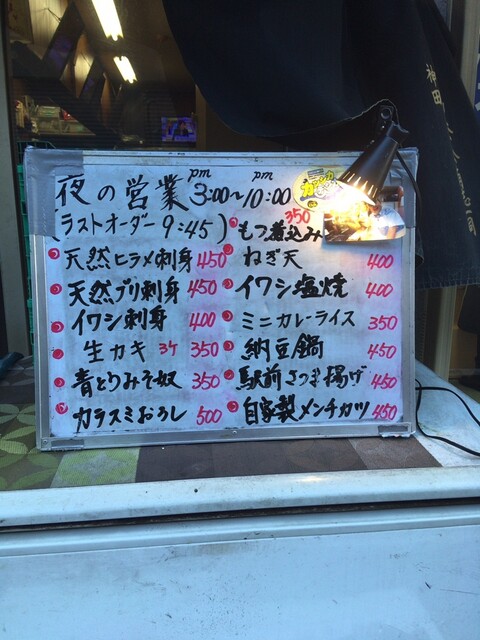 夜の営業 pm 3:00～pm 10:00
(ラストオーダー 9:45)
天然ヒラメ刺身 450
天然ブリ刺身 450
イワシ刺身 400
生カキ 3ケ 350
青とうみそ奴 350
カラスミおろし 500
もつ煮込み 350
ねぎ天 400
イワシ塩焼 400
ミニカレーライス 350
納豆鍋 450
駅前さつま揚げ 450
自家製メンチカツ 450
神田